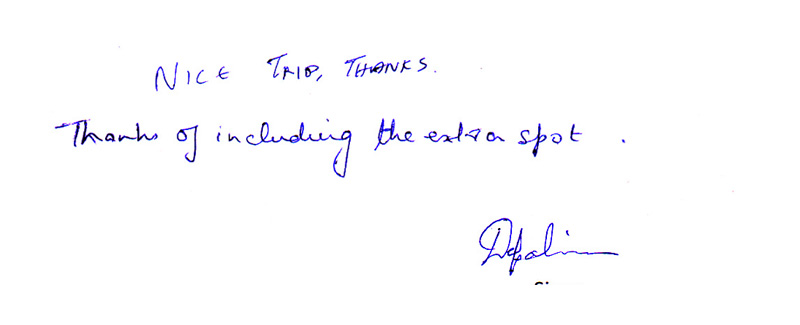 NICE TRIP, THANKS.
Thanks of including the extra spot .